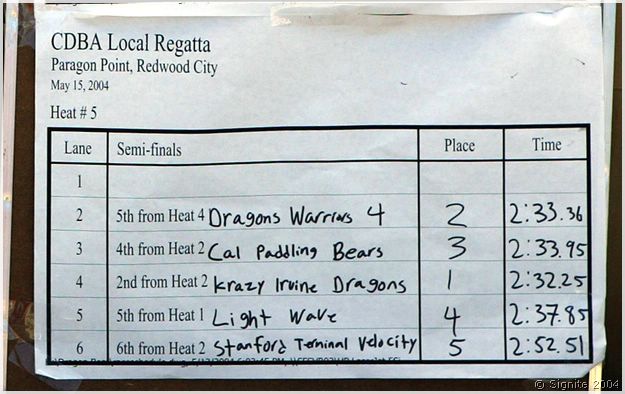 CDBA Local Regatta
Paragon Point, Redwood City
May 15, 2004
Heat # 5
Lane Semi-finals Place Time
1
2 5th from Heat 4 Dragons Warriors 4 2 2:33.36
3 4th from Heat 2 Cal Paddling Bears 3 2:33.95
4 2nd from Heat 2 Krazy Irvine Dragons 1 2:32.25
5 5th from Heat 1 Light Wave 4 2:37.85
6 6th from Heat 2 Stanford Terminal Velocity 5 2:52.51
© Signite 2004